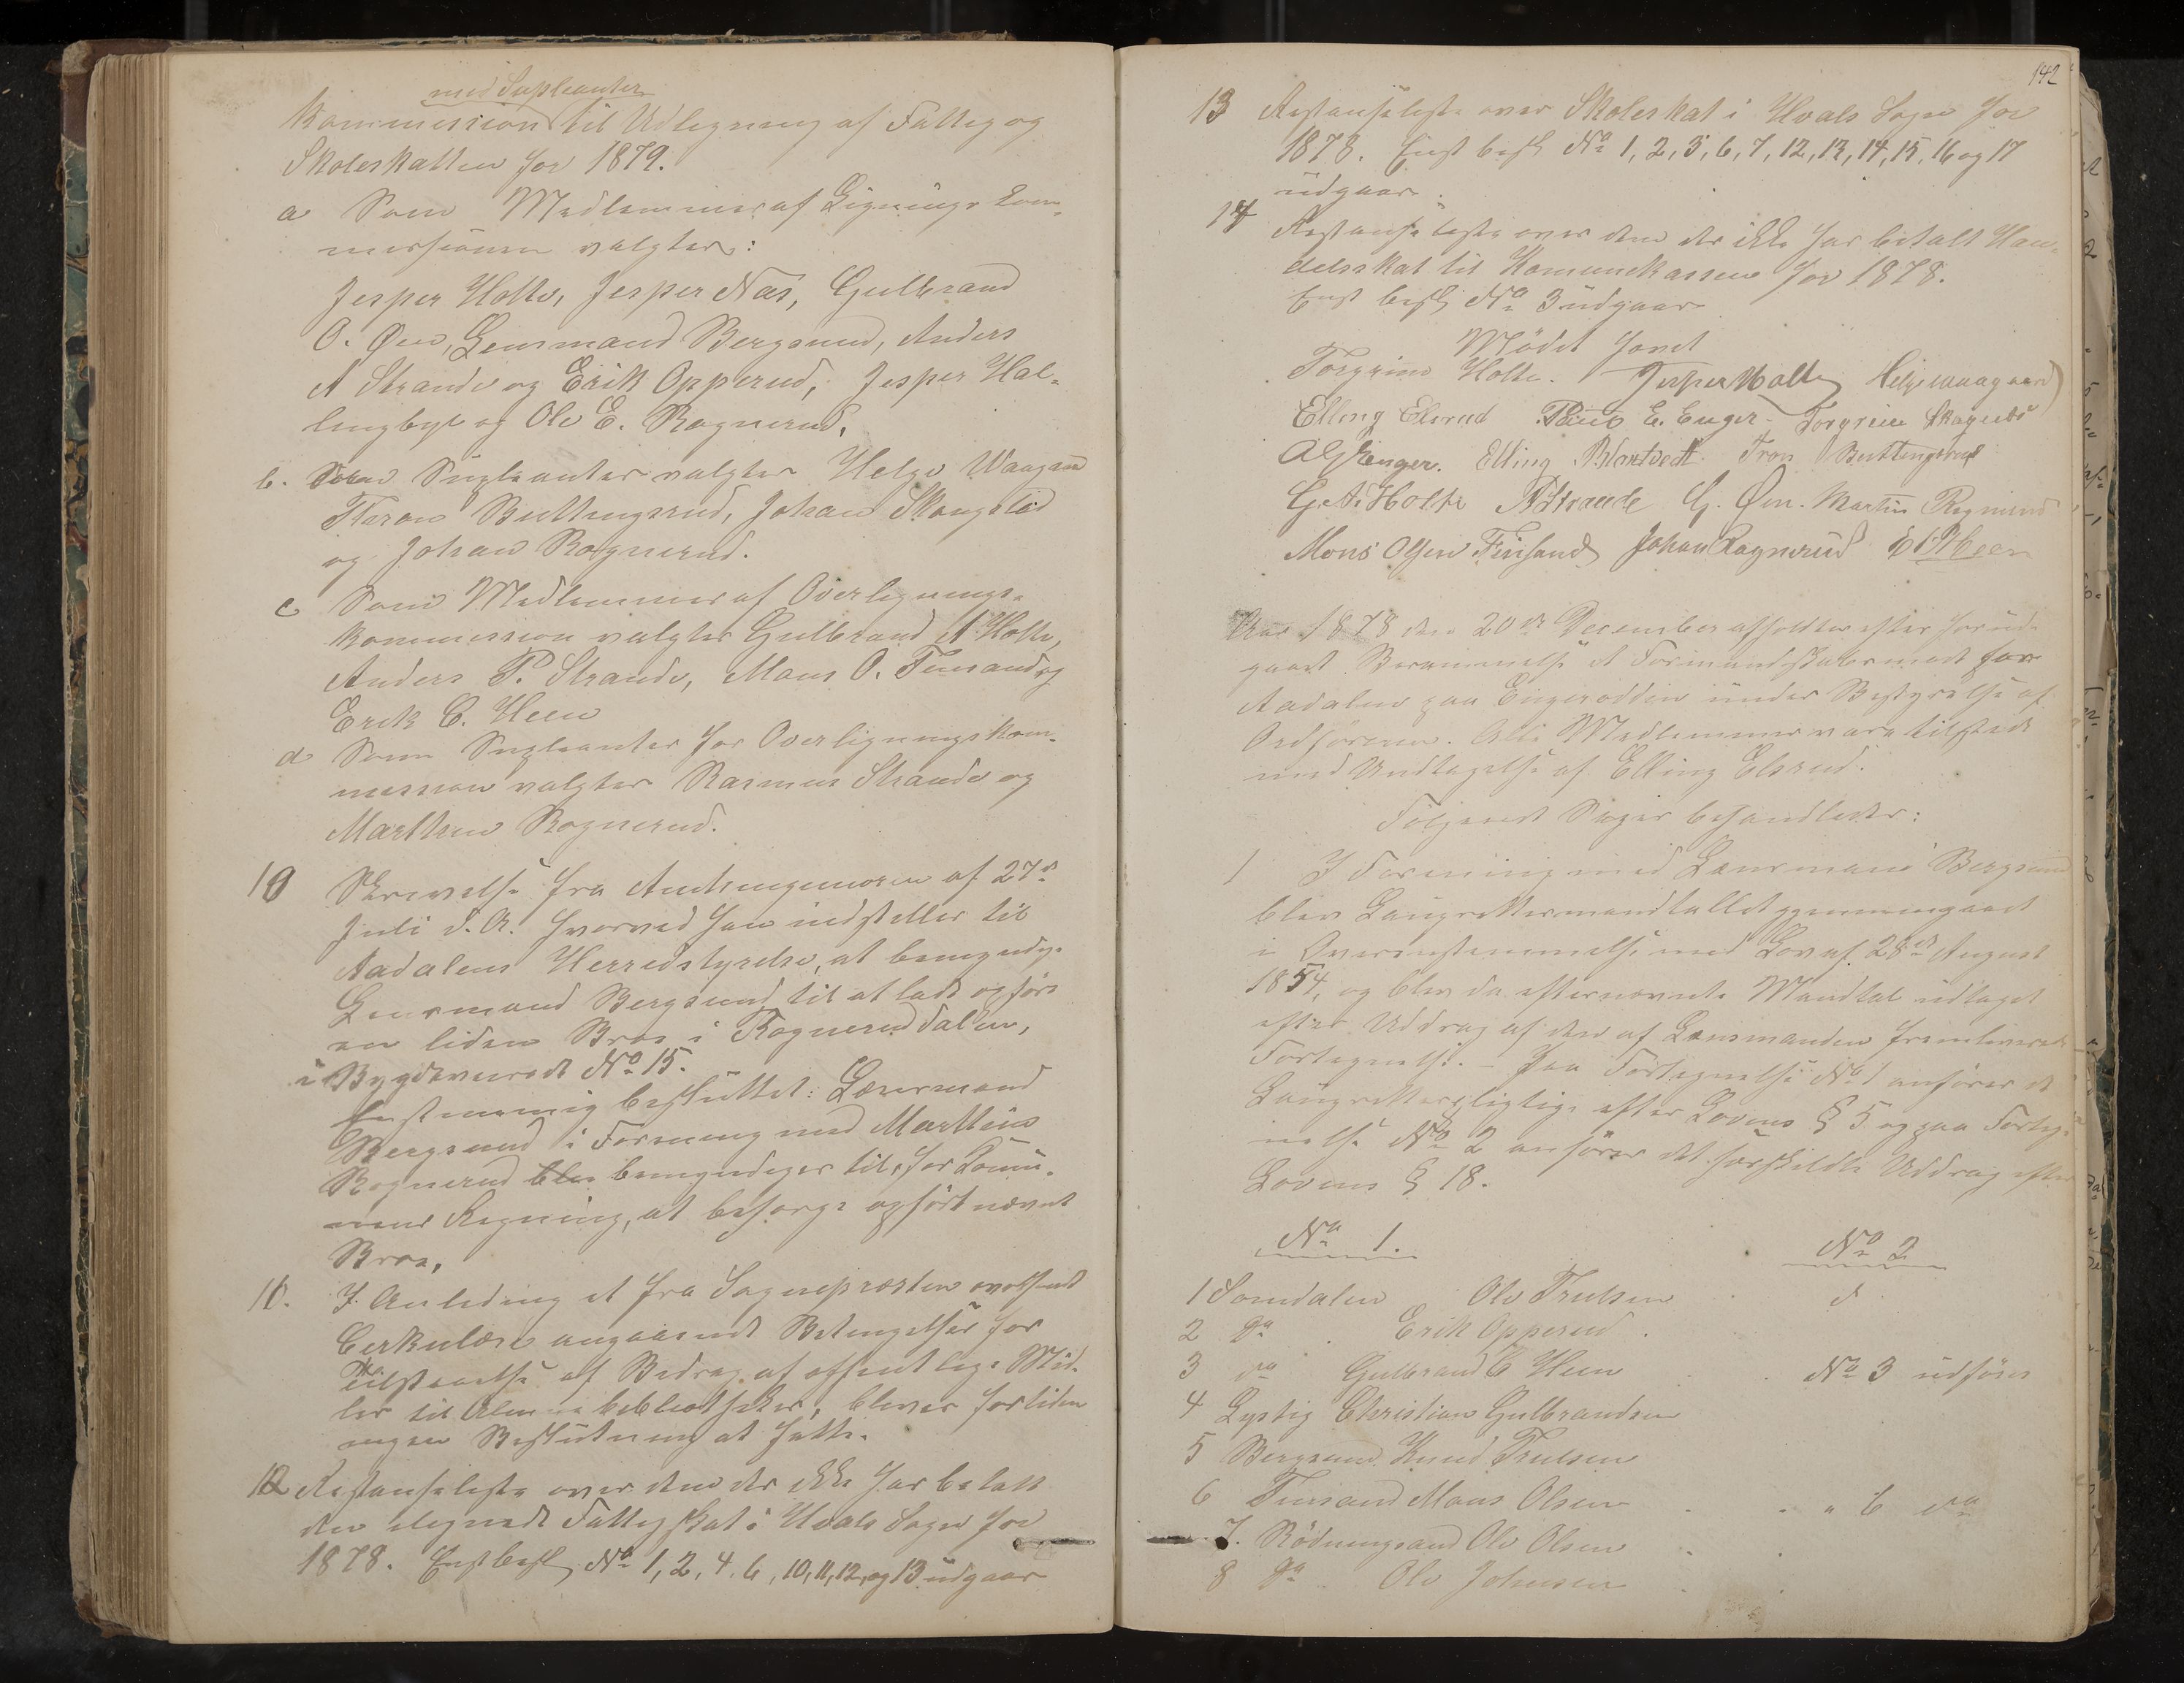 med Supleanter
Kommission til Udligning af Fattig og
Skoleskatten for 1879.
a Som Medlemmer af Lignings kom-
missionen valgtes:
Jesper Holte, Jesper Næs, Gulbrand
O. Øen, Lensmand Bergsund, Anders
A Strande og Erik Opperud, Jesper Hal-
lingbye og Ole E. Rognerud.
b. Som Supleanter valgtes Helge Waagaard
Thron Buttingsrud, Johan Skaugslød
og Johan Rognerud.
c Som Medlemmer af Overlignings-
kommission valgtes Gulbrand A. Holte,
Anders P. Strande, Mons O. Finsand og
Erik E. Heen
d Som Supleanter for Overligningskom-
mission valgtes Rasmus Strande og
Marthin Rognerud.
10 Skrivelse fra Amtsingeniøren af 27de
Juli d. A. hvorved han indstiller til
Aadalens Herredstyrelse, at bemyndige
Lensmand Bergsund til at lade opføre
en liden Bro i Rogneruddalen,
i Bygdeveirode No 15.
Enstemmig besluttet: Lænsmand
Bergsund i Forening med Marthin
Rognerud blev bemyndiges til, for Komu-
nens Regning, at besørge opført nævnte
Bro.
11. I Anledning et fra Sognepræsten modtaget
Cirkulære angaaende Betingelser for
Tilstaaelse af Bidrag af offentlige Mid-
ler til Almuebibliotheker, bliver for tiden
ingen Beslutning at fatte.
12 Restanseliste over dem der ikke har betalt
den ilignede Fattigskat i Hvals Sogn for
1878. Enst besl No 1, 2, 4. 6, 10, 11, 12, og 13 udgaar
142
13 Restanseliste over Skoleskat i Hvals Sogn for
1878. Enst besl No 1, 2, 5, 6, 7, 12, 13, 14, 15, 16 og 17
udgaar.
14 Restanseliste over dem der ikke har betalt Han-
delsskat til Komunekassen for 1878.
Enst besl No 3 udgaar
Mødet hævet
Torgrim Holte. Jesper Holte Helge Waagaard
Elling Elsrud Paul E. Enger Torgrim Skagnæs
Elling Blaktvedt Tron Buttingsrud
G. A. Holte A Strande G. Øen. Martin Rognerud
Mons Olsen Finsand Johan Rognerud E E Heen
Aar 1878 den 20de December afholdtes efter forud-
gaaet Berammelse et Formandskabsmøde for
Aadalen paa Engerodden under Bestyrelse af
Ordføreren. Alle Medlemmer vare tilstede
med Undtagelse af Elling Elsrud.
Følgende Sager behandledes:
1 I Forening med Lænsmand Bergsund
blev Laugrettesmandtallet gjennemgaaet
i Overenstemmelse med Lov af 28de August
1854, og blev da efternævnte Mandtal udtaget
efter Uddrag af den af Lensmanden fremleverede
Fortegnelse. – Paa Fortegnelse No 1 anføres de
Laugrettespligtige efter Lovens § 5 og paa Forteg-
nelse No 2 anføres det særskildte Uddrag efter
Lovens § 18.
No 1. No 2
1 Somdalen Ole Trulsen
2 do Erik Opperud
3 do Gulbrand E Heen No 3 udføres
4 Lystig Christian Gulbrandsen
5 Bergsund Knud Trulsen
6 Finsand Mons Olsen " 6 do
7. Rødningsand Ole Olsen
8 do Ole Johnsen